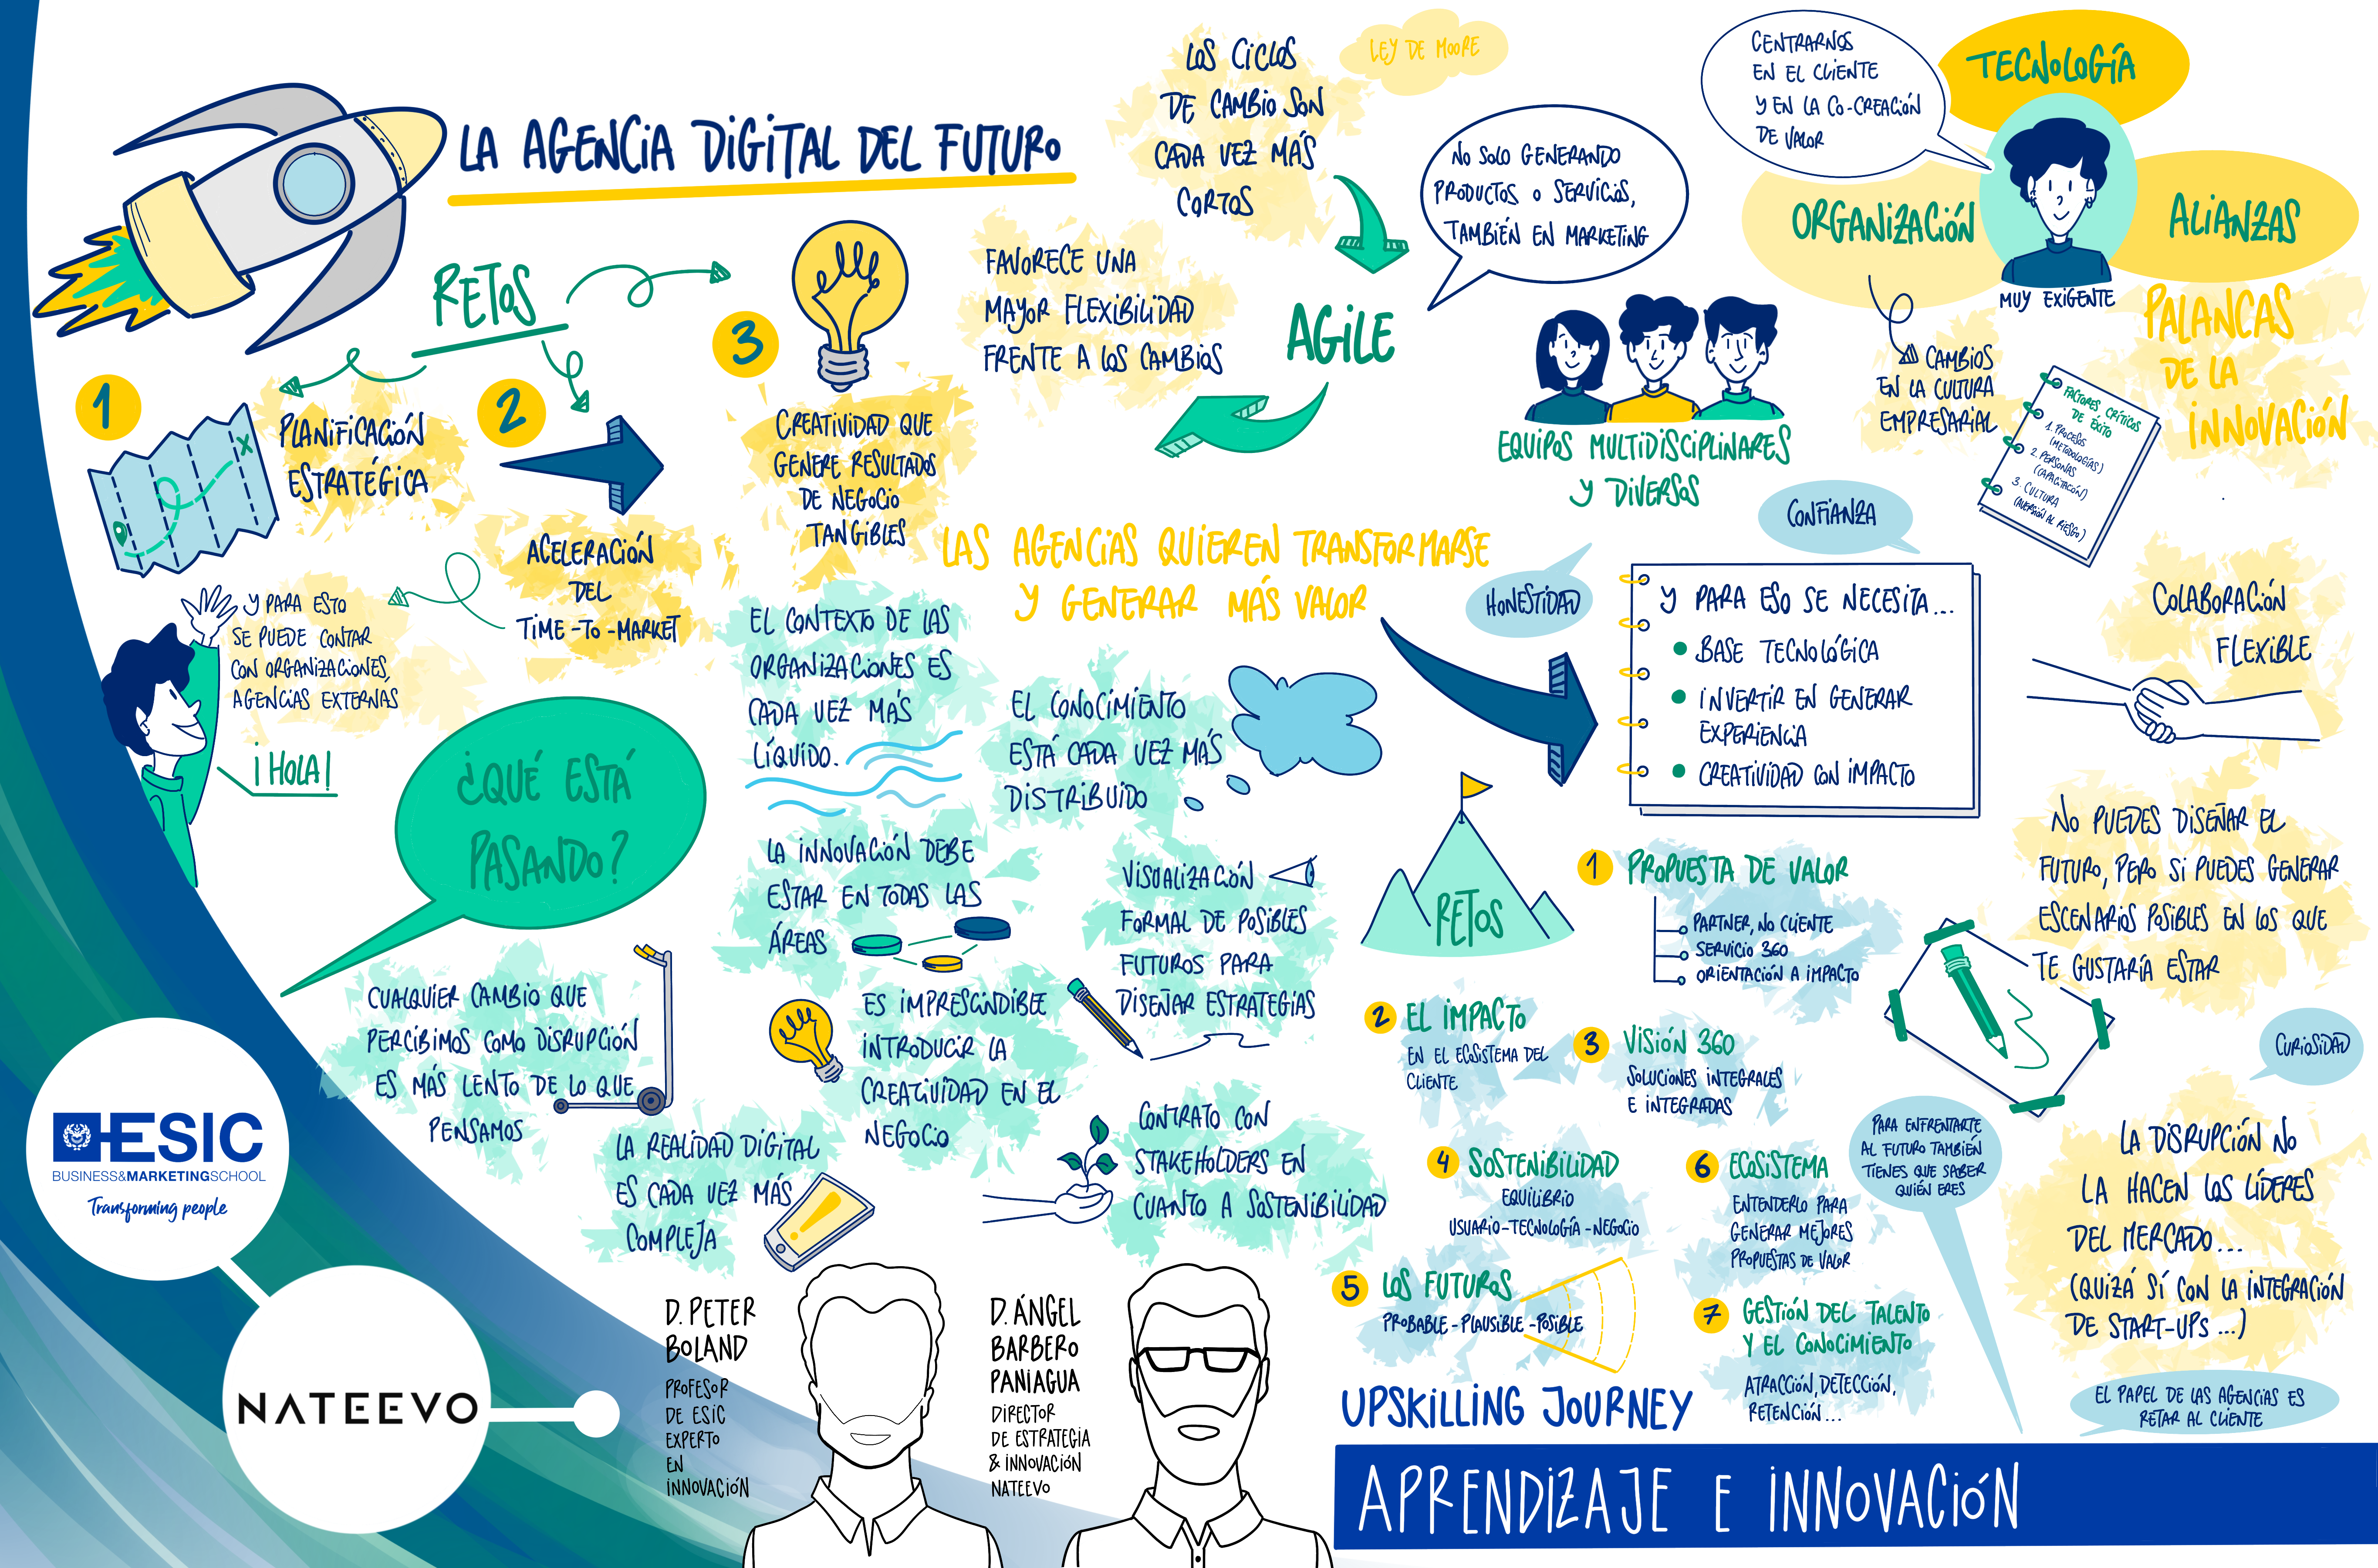 LA AGENCIA DIGITAL DEL FUTURO
RETOS
1
PLANIFICACIÓN
ESTRATÉGICA
2
ACELERACIÓN
DEL
TIME-TO-MARKET
3
CREATIVIDAD QUE
GENERE RESULTADOS
DE NEGOCIO
TANGIBLES
Y PARA ESTO
SE PUEDE CONTAR
CON ORGANIZACIONES,
AGENCIAS EXTERNAS
¡HOLA!
LOS CICLOS
DE CAMBIO SON
CADA VEZ MÁS
CORTOS
LEY DE MOORE
FAVORECE UNA
MAYOR FLEXIBILIDAD
FRENTE A LOS CAMBIOS
AGILE
NO SOLO GENERANDO
PRODUCTOS O SERVICIOS,
TAMBIÉN EN MARKETING
EQUIPOS MULTIDISCIPLINARES
Y DIVERSOS
CENTRARNOS
EN EL CLIENTE
Y EN LA CO-CREACIÓN
DE VALOR
TECNOLOGÍA
ORGANIZACIÓN
ALIANZAS
MUY EXIGENTE
PALANCAS
DE LA
INNOVACIÓN
CAMBIOS
EN LA CULTURA
EMPRESARIAL
FACTORES CRÍTICOS
DE ÉXITO
1. PROCESOS
(METODOLOGÍAS)
2. PERSONAS
(CAPACITACIÓN)
3. CULTURA
(AVERSIÓN AL RIESGO)
LAS AGENCIAS QUIEREN TRANSFORMARSE
Y GENERAR MÁS VALOR
HONESTIDAD
CONFIANZA
Y PARA ESO SE NECESITA...
BASE TECNOLÓGICA
INVERTIR EN GENERAR
EXPERIENCIA
CREATIVIDAD CON IMPACTO
COLABORACIÓN
FLEXIBLE
¿QUÉ ESTÁ
PASANDO?
EL CONTEXTO DE LAS
ORGANIZACIONES ES
CADA VEZ MAS
LÍQUIDO.
EL CONOCIMIENTO
ESTÁ CADA VEZ MÁS
DISTRIBUIDO
LA INNOVACIÓN DEBE
ESTAR EN TODAS LAS
ÁREAS
VISUALIZACIÓN
FORMAL DE POSIBLES
FUTUROS PARA
DISEÑAR ESTRATEGIAS
CUALQUIER CAMBIO QUE
PERCIBIMOS COMO DISRUPCIÓN
ES MÁS LENTO DE LO QUE
PENSAMOS
ES IMPRESCINDIBLE
INTRODUCIR LA
CREATIVIDAD EN EL
NEGOCIO
LA REALIDAD DIGITAL
ES CADA VEZ MÁS
COMPLEJA
CONTRATO CON
STAKEHOLDERS EN
CUANTO A SOSTENIBILIDAD
RETOS
1 PROPUESTA DE VALOR
PARTNER, NO CLIENTE
SERVICIO 360
ORIENTACIÓN A IMPACTO
2 EL IMPACTO
EN EL ECOSISTEMA DEL
CLIENTE
3 VISIÓN 360
SOLUCIONES INTEGRALES
E INTEGRADAS
4 SOSTENIBILIDAD
EQUILIBRIO
USUARIO-TECNOLOGÍA-NEGOCIO
5 LOS FUTUROS
PROBABLE-PLAUSIBLE-POSIBLE
6 ECOSISTEMA
ENTENDERLO PARA
GENERAR MEJORES
PROPUESTAS DE VALOR
7 GESTIÓN DEL TALENTO
Y EL CONOCIMIENTO
ATRACCIÓN, DETECCIÓN,
RETENCIÓN...
NO PUEDES DISEÑAR EL
FUTURO, PERO SI PUEDES GENERAR
ESCENARIOS POSIBLES EN LOS QUE
TE GUSTARÍA ESTAR
CURIOSIDAD
PARA ENFRENTARTE
AL FUTURO TAMBIÉN
TIENES QUE SABER
QUIÉN ERES
LA DISRUPCIÓN NO
LA HACEN LOS LÍDERES
DEL MERCADO...
(QUIZÁ SÍ CON LA INTEGRACIÓN
DE START-UPS...)
EL PAPEL DE LAS AGENCIAS ES
RETAR AL CLIENTE
ESIC
BUSINESS&MARKETINGSCHOOL
Transforming people
NATEEVO
D. PETER
BOLAND
PROFESOR
DE ESIC
EXPERTO
EN
INNOVACIÓN
D. ÁNGEL
BARBERO
PANIAGUA
DIRECTOR
DE ESTRATEGIA
& INNOVACIÓN
NATEEVO
UPSKILLING JOURNEY
APRENDIZAJE E INNOVACIÓN